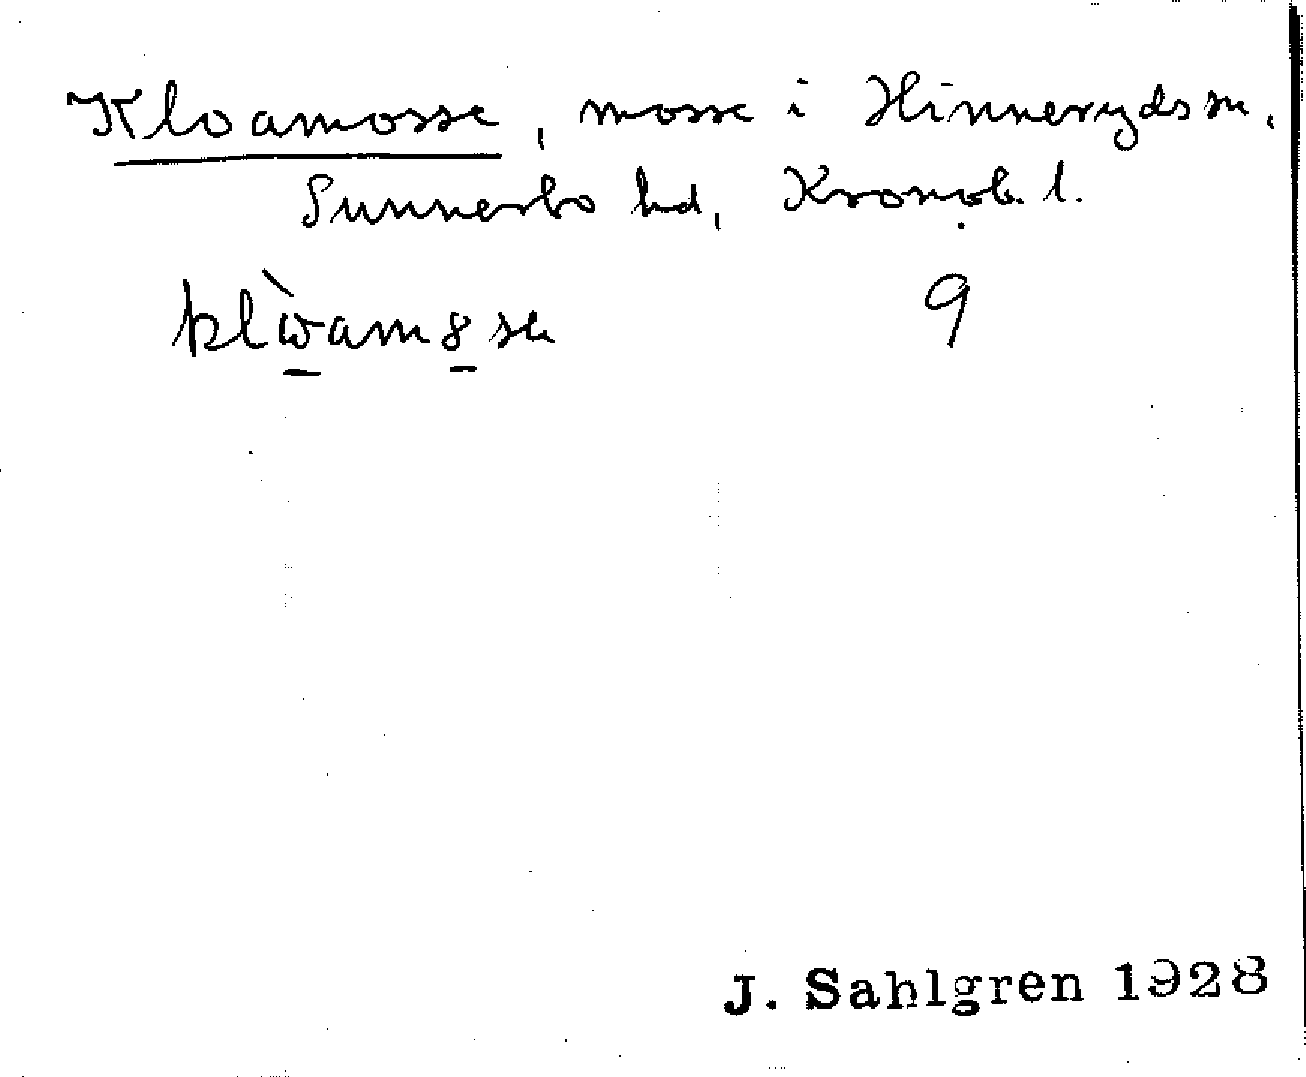 Kloamosse, mosse i Hinneryds sn,
Sunnerbo hd, Kronob. l.
klὼam8se 9
J. Sahlgren 1928